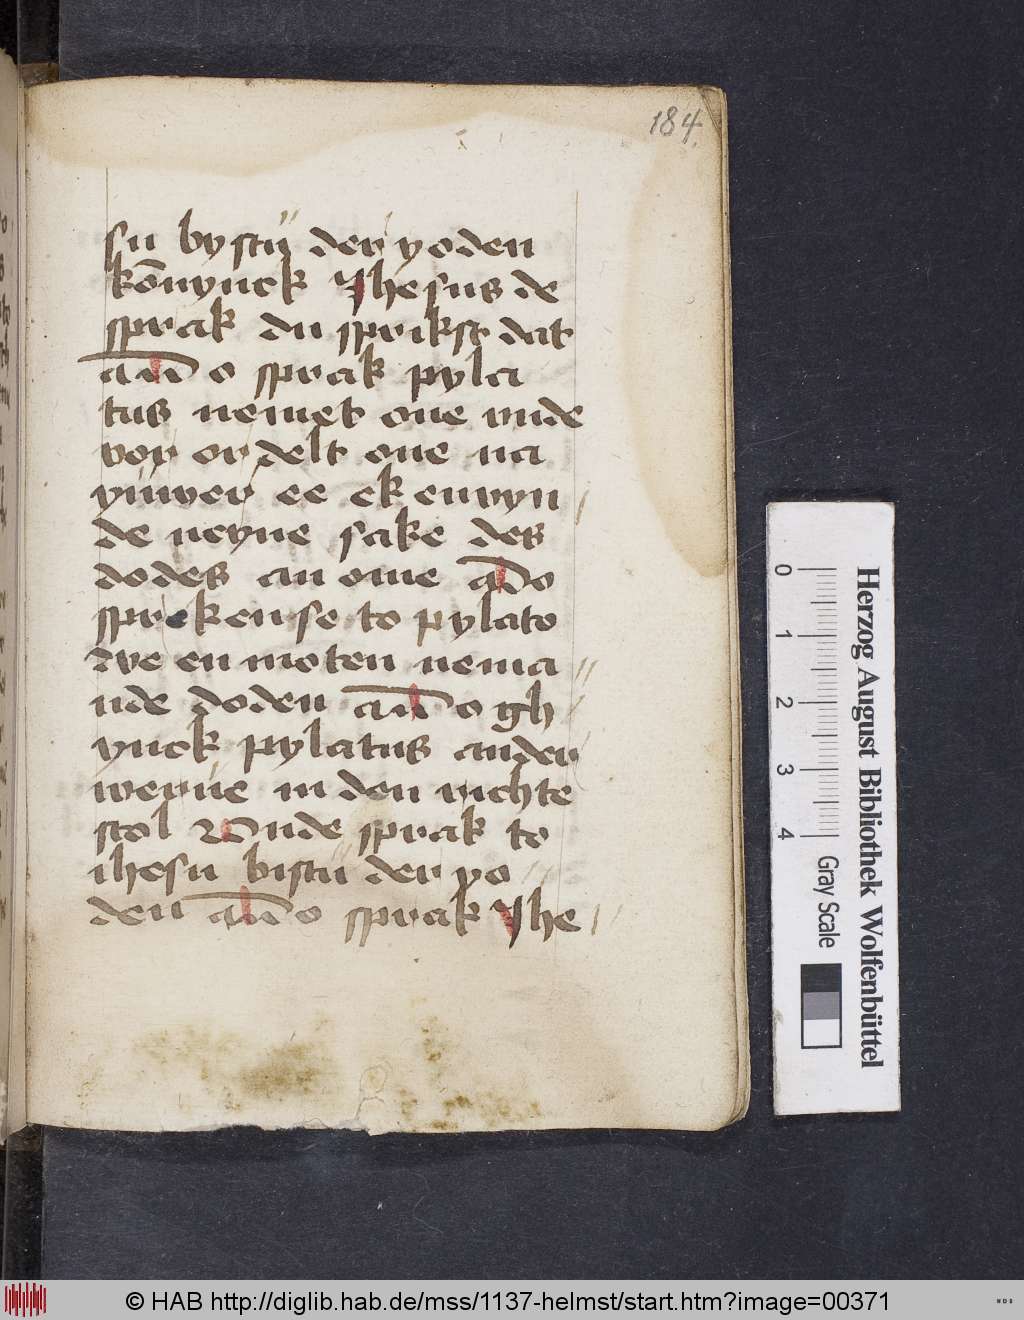 184
su bystu der yoden
kōnynck Yhesus de
sprak du sprikst dat
Do sprak pyla
tus nemet one vnde
vor ordelt one na
yuwer ee ek en vyn
de neyne sake des
dodes an ome Do
spreken se to pylato
we en moten nema
nde doden Do gh
ynck pylatus ander
werue in den richte
stol Vnde sprak to
ihesu bistu der yo
den Do sprak Yhe
Herzog August Bibliothek Wolfenbüttel
0 1 2 3 4
Gray Scale
© HAB http://diglib.hab.de/mss/1137-helmst/start.htm?image=00371